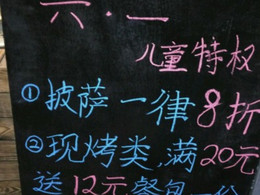 六·一
儿童特权
①披萨一律8折
②现烤类,满20元
送12元餐包一份